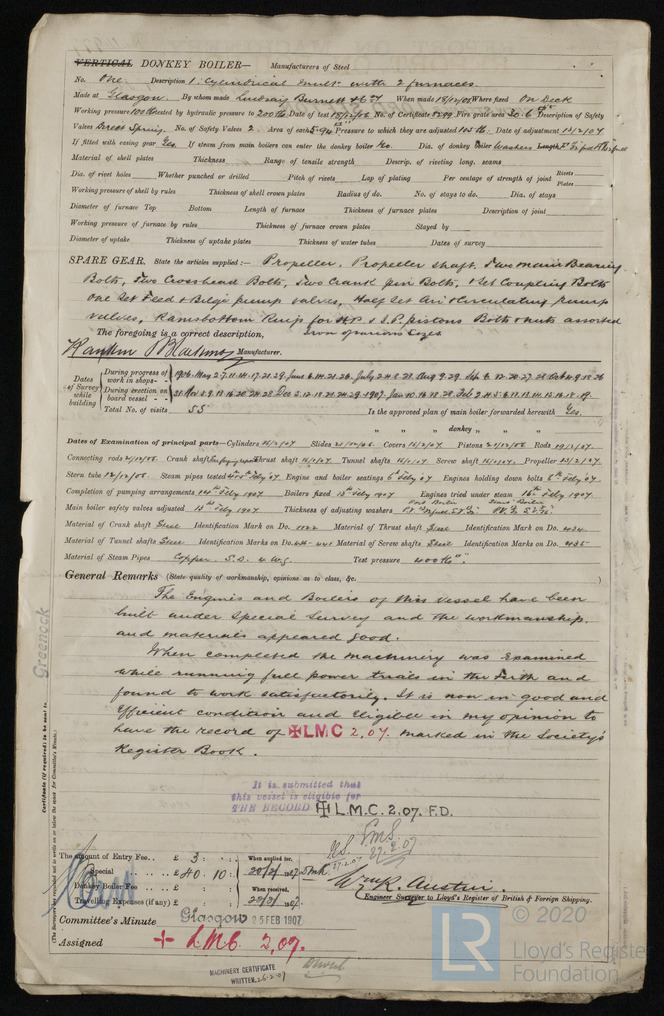 VERTICAL DONKEY BOILER— Manufacturers of Steel
No. One. Description 1. Cylindrical Mult. with 2 furnaces.
Made at Glasgow. By whom made Lindsay Burnett & Co When made 18/12/06 Where fixed On Deck
Working pressure 100 lbs tested by hydraulic pressure to 200 lbs Date of test 18/12/06 No. of Certificate 8299 Fire grate area 30.6 Description of Safety
Valves Direct Spring. No. of Safety Valves 2 Area of each 5.94 Pressure to which they are adjusted 105 lb. Date of adjustment 15/2/07
If fitted with easing gear Yes. If steam from main boilers can enter the donkey boiler No. Dia. of donkey boiler Washers Length
Material of shell plates Thickness Range of tensile strength Descrip. of riveting long. seams
Dia. of rivet holes Whether punched or drilled Pitch of rivets Lap of plating Per centage of strength of joint Rivets Plates
Working pressure of shell by rules Thickness of shell crown plates Radius of do. No. of stays to do. Dia. of stays
Diameter of furnace Top Bottom Length of furnace Thickness of furnace plates Description of joint
Working pressure of furnace by rules Thickness of furnace crown plates Stayed by
Diameter of uptake Thickness of uptake plates Thickness of water tubes Dates of survey
SPARE GEAR. State the articles supplied:— Propeller, Propeller shaft, Two Main Bearing
Bolts, Two Crosshead Bolts, Two Crank pin Bolts, 1 Set Coupling Bolts
One Set Feed & Bilge pump valves, Half Set Air & Circulating pump
valves, Ramsbottom Rings for H.P. & I.P. pistons Bolts & nuts assorted
Iron of various sizes
The foregoing is a correct description,
Rankin & Blackmore Manufacturer.
Dates of Survey while building
During progress of work in shops - - 1906. May 2. 7. 11. 14. 17. 21. 29. June 6. 14. 21. 26. July 2. 4. 5. 25. Aug 9. 29. Sep 6. 12. 20. 27. 28 Oct 4. 9. 15. 26
During erection on board vessel - - - 31. Nov 5. 9. 13. 16. 20. 24. 28 Dec 5. 12. 18. 20. 24. 29. 1907. Jan 10. 14. 16. 18. 22 Feb 2. 4. 5. 6. 12. 13. 14. 15. 16. 18. 19.
Total No. of visits 55 Is the approved plan of main boiler forwarded herewith Yes.
" " " donkey " " "
Dates of Examination of principal parts—Cylinders 16/2/07 Slides 21/12/06 Covers 16/2/07 Pistons 21/12/06 Rods 19/12/07.
Connecting rods 21/12/06. Crank shaft Thrust shaft 16/1/07. Tunnel shafts 16/1/07. Screw shaft 16/1/07. Propeller 23/1/07
Stern tube 12/12/06. Steam pipes tested Feby '07. Engine and boiler seatings 5th Feby '07 Engines holding down bolts 6th Feby '07.
Completion of pumping arrangements 14th Feby 1907 Boilers fixed 13th Feby 1907 Engines tried under steam 16th Feby 1907
Main boiler safety valves adjusted 15th Feby 1907 Thickness of adjusting washers
Material of Crank shaft Steel Identification Mark on Do. 1022 Material of Thrust shaft Steel Identification Mark on Do. 434
Material of Tunnel shafts Steel Identification Marks on Do. Material of Screw shafts Steel Identification Marks on Do. 435
Material of Steam Pipes Copper. S.D. Test pressure 400 lbs □".
General Remarks (State quality of workmanship, opinions as to class, &c. )
The Engines and Boilers of this vessel have been
built under Special Survey and the workmanship.
and materials appeared good.
When completed the machinery was examined
while running full power trials in the Firth and
found to work satisfactorily. It is now in good and
efficient condition and eligible in my opinion to
have the record of ✠LMC 2.07. marked in the Society's
Register Book.
It is submitted that
this vessel is eligible for
THE RECORD ✠ L.M.C. 2.07. F.D.
27.2.07
The amount of Entry Fee.. £ 3 : : When applied for.
Special .. .. £ 40. 10 : 20/2/1907
Donkey Boiler Fee .. £ : : When received,
Travelling Expenses (if any) £ : : 22/2/1907.
Wm R. Austin.
Engineer Surveyor to Lloyd's Register of British & Foreign Shipping.
Committee's Minute Glasgow 25 FEB 1907
Assigned + L.M.C. 2,07.
MACHINERY CERTIFICATE
WRITTEN. 26.2.07
Certificate (if required) to be sent to Greenock
(The Surveyors are requested not to write on or below the space for Committee's Minute.)
LR © 2020
Lloyd's Register
Foundation